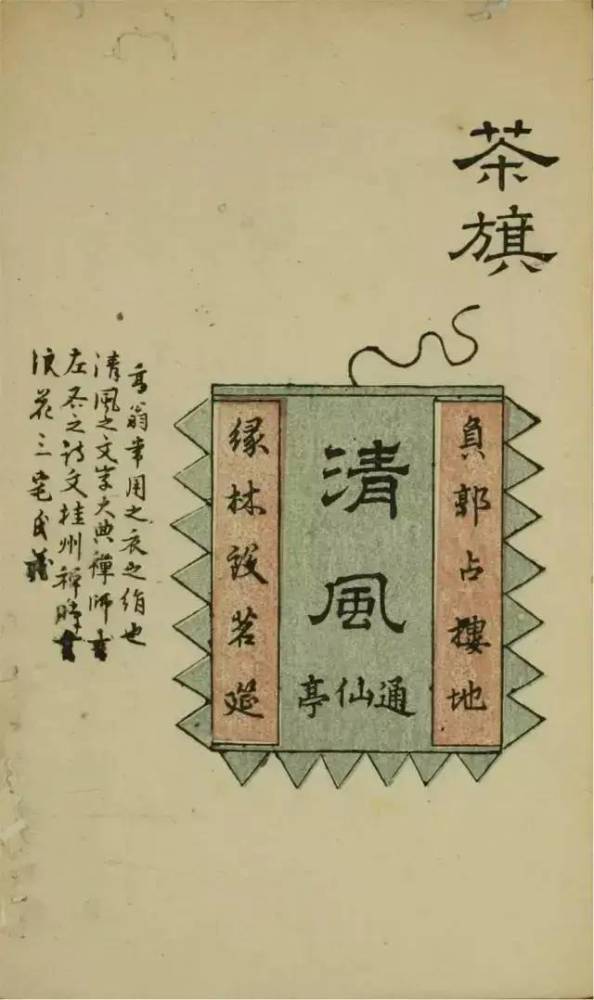 茶旗
負郭占樓地
清風
通仙亭
縁林設茗筵
高翁常用之衣之絹也
清風之文字大典禪師書
左右之詩文桂州禪師書
浪花三宅氏蔵